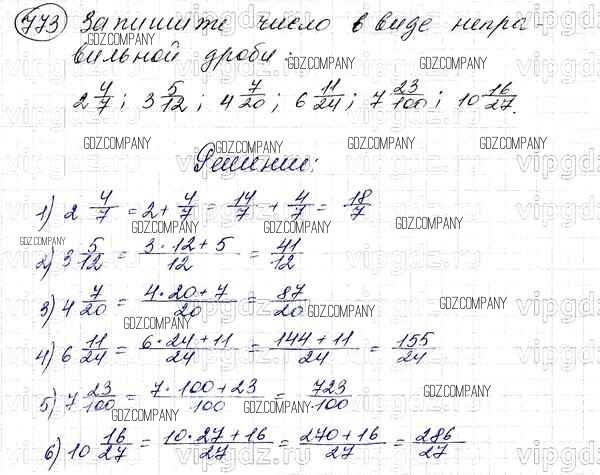 773 Запишите число в виде непра-
вильной дроби:
2 4/7; 3 5/12; 4 7/20; 6 11/24; 7 23/100; 10 16/27.
Решение:
1) 2 4/7 = 2 + 4/7 = 14/7 + 4/7 = 18/7
2) 3 5/12 = (3·12+5)/12 = 41/12
3) 4 7/20 = (4·20+7)/20 = 87/20
4) 6 11/24 = (6·24+11)/24 = (144+11)/24 = 155/24
5) 7 23/100 = (7·100+23)/100 = 723/100
6) 10 16/27 = (10·27+16)/27 = (270+16)/27 = 286/27
GDZ.COMPANY
vipgdz.ru